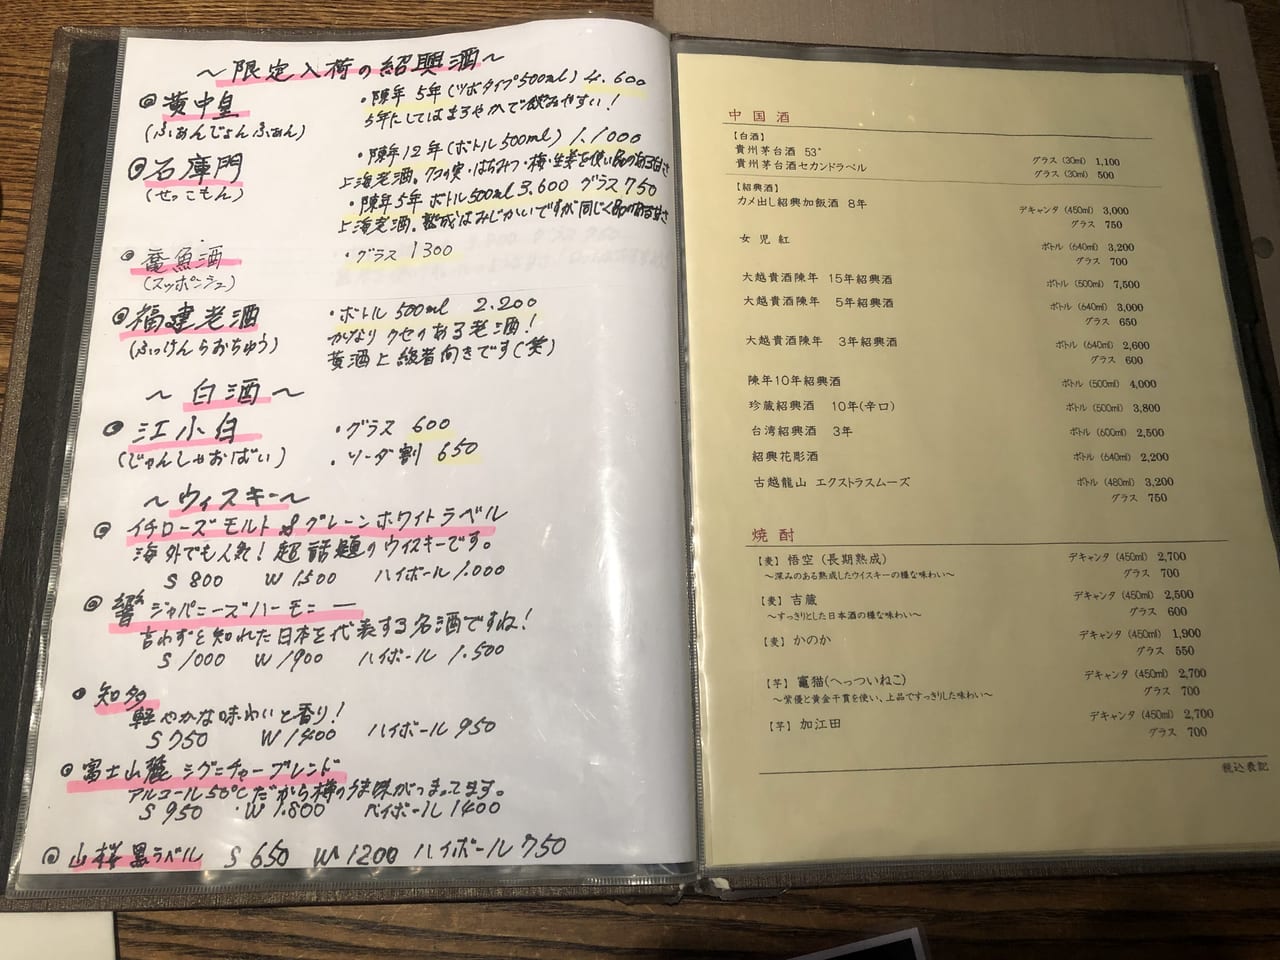 ～限定入荷の紹興酒～
黄中皇
(ふぁんじょんふぁん)
・陳年 5年(ツボタイプ500ml) 4.600
5年にしてはまろやかで飲みやすい！
石庫門
(せっこもん)
・陳年12年(ボトル500ml) 11.000
上海老酒。クコの実・はちみつ・梅・生姜を使い品のある甘さ
・陳年5年 ボトル500ml 3.600 グラス750
上海老酒。熟成はみじかいですが同じく品のある甘さ
魚酒
(スッポンシュ)
・グラス 1300
福建老酒
(ふっけんらおちゅう)
・ボトル 500ml 2.200
かなり クセのある老酒！
黄酒上級者向きです(笑)
～白酒～
江小白
(じゃんしゃおばい)
・グラス 600
・ソーダ割 650
～ウィスキー～
イチローズモルト&グレーンホワイトラベル
海外でも人気！超話題のウイスキーです。
S 800 W 1500 ハイボール 1.000
響 ジャパニーズハーモニー
言わずと知れた日本を代表する名酒ですね！
S 1000 W 1900 ハイボール 1.500
知多
軽やかな味わいと香り！
S 750 W 1400 ハイボール 950
富士山麓 シグニチャーブレンド
アルコール50℃だから樽のうま味がつまってます。
S 950 W 1.800 ハイボール 1400
山桜 黒ラベル S 650 W 1200 ハイボール 750
中国酒
【白酒】
貴州茅台酒 53°
グラス (30ml) 1,100
貴州茅台酒セカンドラベル
グラス (30ml) 500
【紹興酒】
カメ出し紹興加飯酒 8年
デキャンタ (450ml) 3,000
グラス 750
女児紅
ボトル (640ml) 3,200
グラス 700
大越貴酒陳年 15年紹興酒
ボトル (500ml) 7,500
大越貴酒陳年 5年紹興酒
ボトル (640ml) 3,000
グラス 650
大越貴酒陳年 3年紹興酒
ボトル (640ml) 2,600
グラス 600
陳年10年紹興酒
ボトル (500ml) 4,000
珍蔵紹興酒 10年(辛口)
ボトル (500ml) 3,800
台湾紹興酒 3年
ボトル (600ml) 2,500
紹興花彫酒
ボトル (640ml) 2,200
古越龍山 エクストラスムーズ
ボトル (480ml) 3,200
グラス 750
焼酎
【麦】悟空 (長期熟成)
デキャンタ (450ml) 2,700
～深みのある熟成したウイスキーの様な味わい～
グラス 700
【麦】吉蔵
デキャンタ (450ml) 2,500
～すっきりとした日本酒の様な味わい～
グラス 600
【麦】かのか
デキャンタ (450ml) 1,900
グラス 550
【芋】竈猫(へっついねこ)
デキャンタ (450ml) 2,700
～紫優と黄金千貫を使い、上品ですっきりした味わい～
グラス 700
【芋】加江田
デキャンタ (450ml) 2,700
グラス 700
税込表記